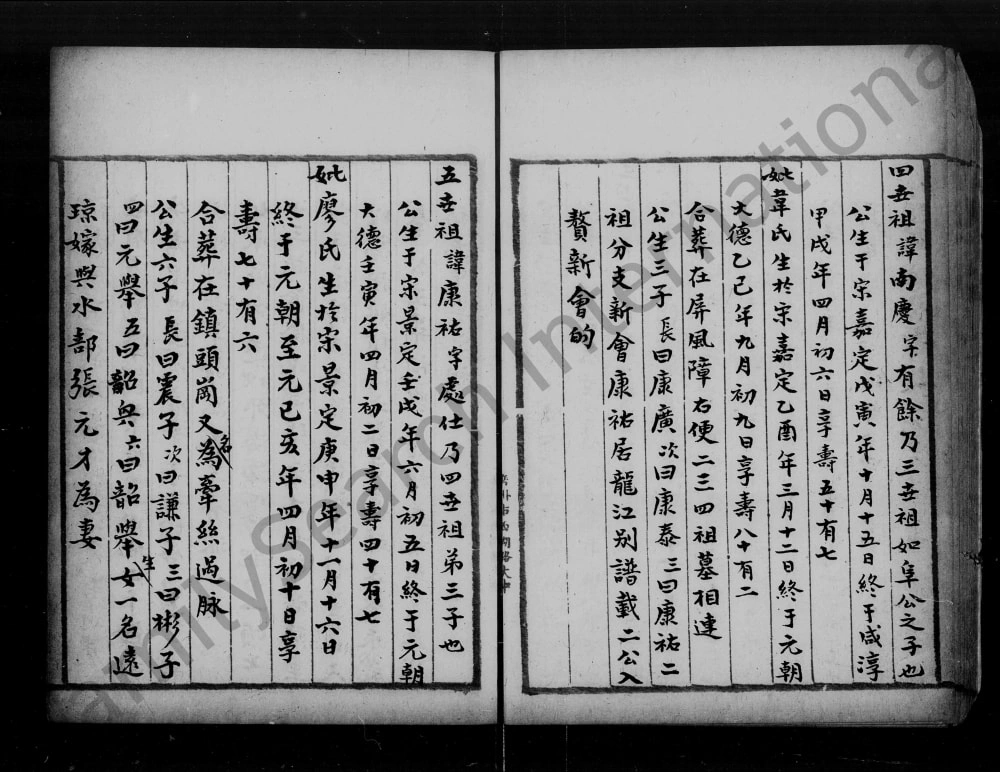 四世祖諱南慶字有餘乃三世祖如阜公之子也
公生于宋嘉定戊寅年十月十五日終于咸淳
甲戌年四月初六日享壽五十有七
妣韋氏生於宋嘉定乙酉年三月十二日終于元朝
大德乙巳年九月初九日享壽八十有二
合葬在屏風障右便二三四祖墓相連
公生三子長曰康廣次曰康泰三曰康祐二
祖分支新會康祐居龍江别譜載二公入
贅新會的
五世祖諱康祐字處仕乃四世祖弟三子也
公生于宋景定壬戌年六月初五日終于元朝
大德壬寅年四月初二日享壽四十有七
妣廖氏生於宋景定庚申年十一月十六日
終于元朝至元己亥年四月初十日享
壽七十有六
合葬在鎮頭崗又名為牽絲過脉
公生六子長曰震子次曰謙子三曰彬子
四曰元舉五曰韶與六曰韶舉生女一名遠
琼嫁與水部張元才為妻
FamilySearch International